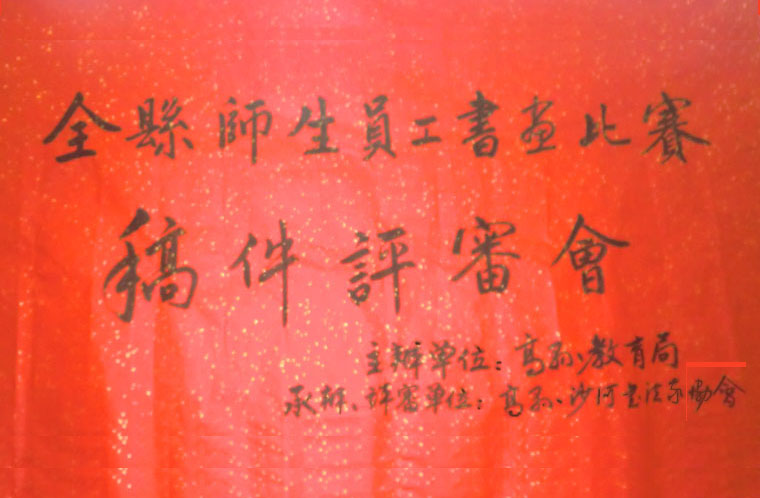 全縣師生員工書畫比賽
稿件評審會
主辦單位：高邑教育局
承辦、評審單位：高邑、沙河書法家協會